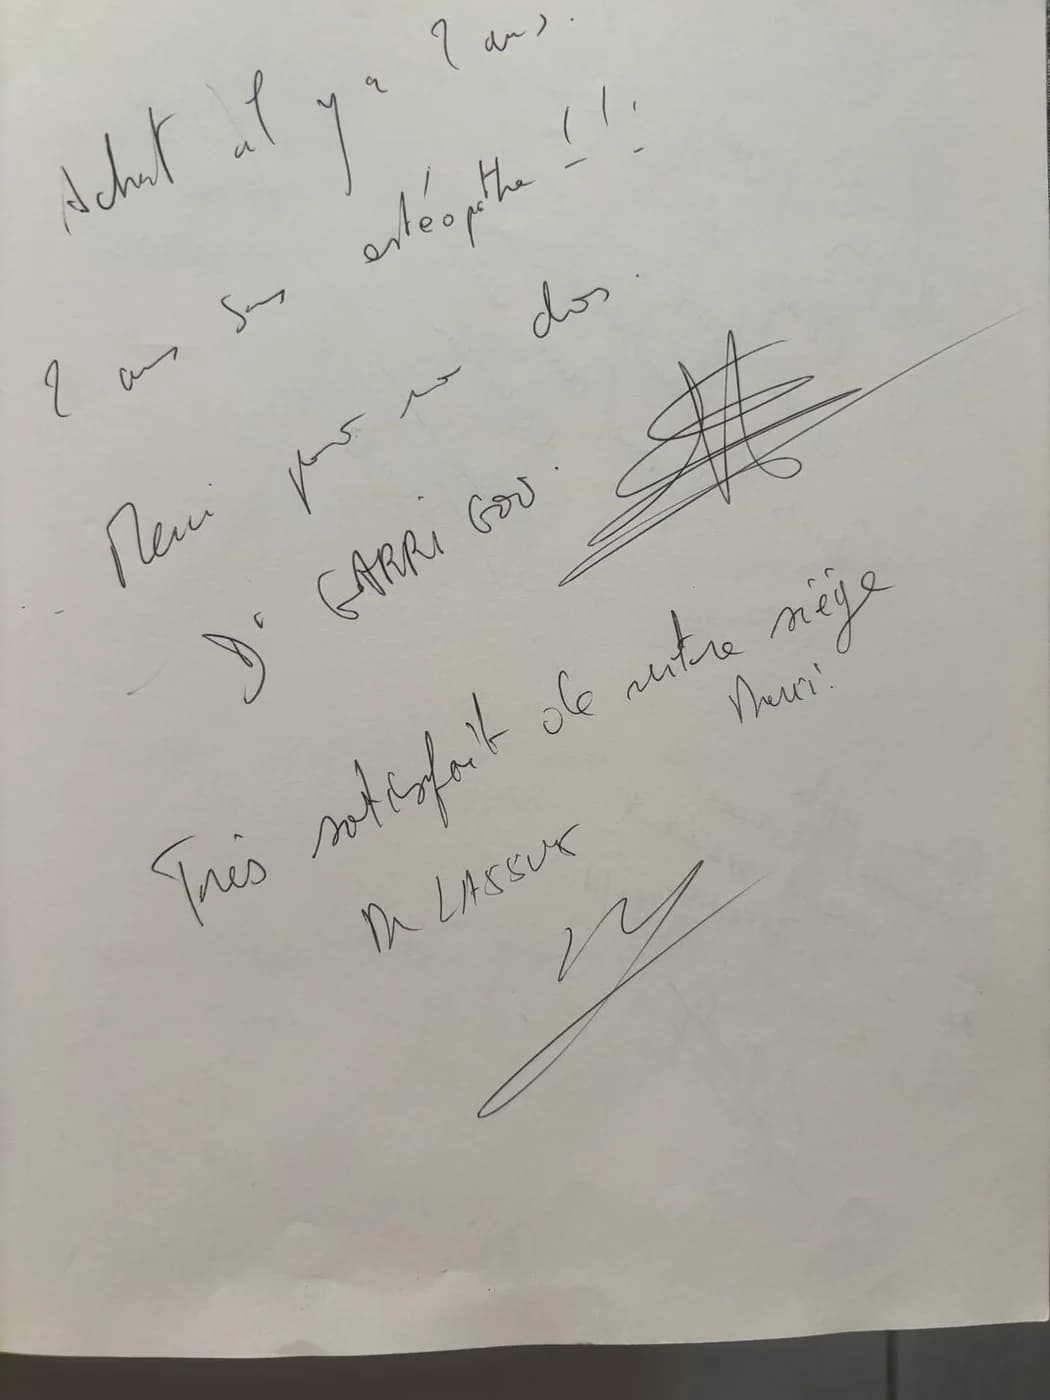 Achat il y a 2 ans.
2 ans sans ostéopathe !!!
Merci pour mon dos.
Dr GARRIGOU.
Très satisfait de votre siège
Merci!
Dr LASSUS